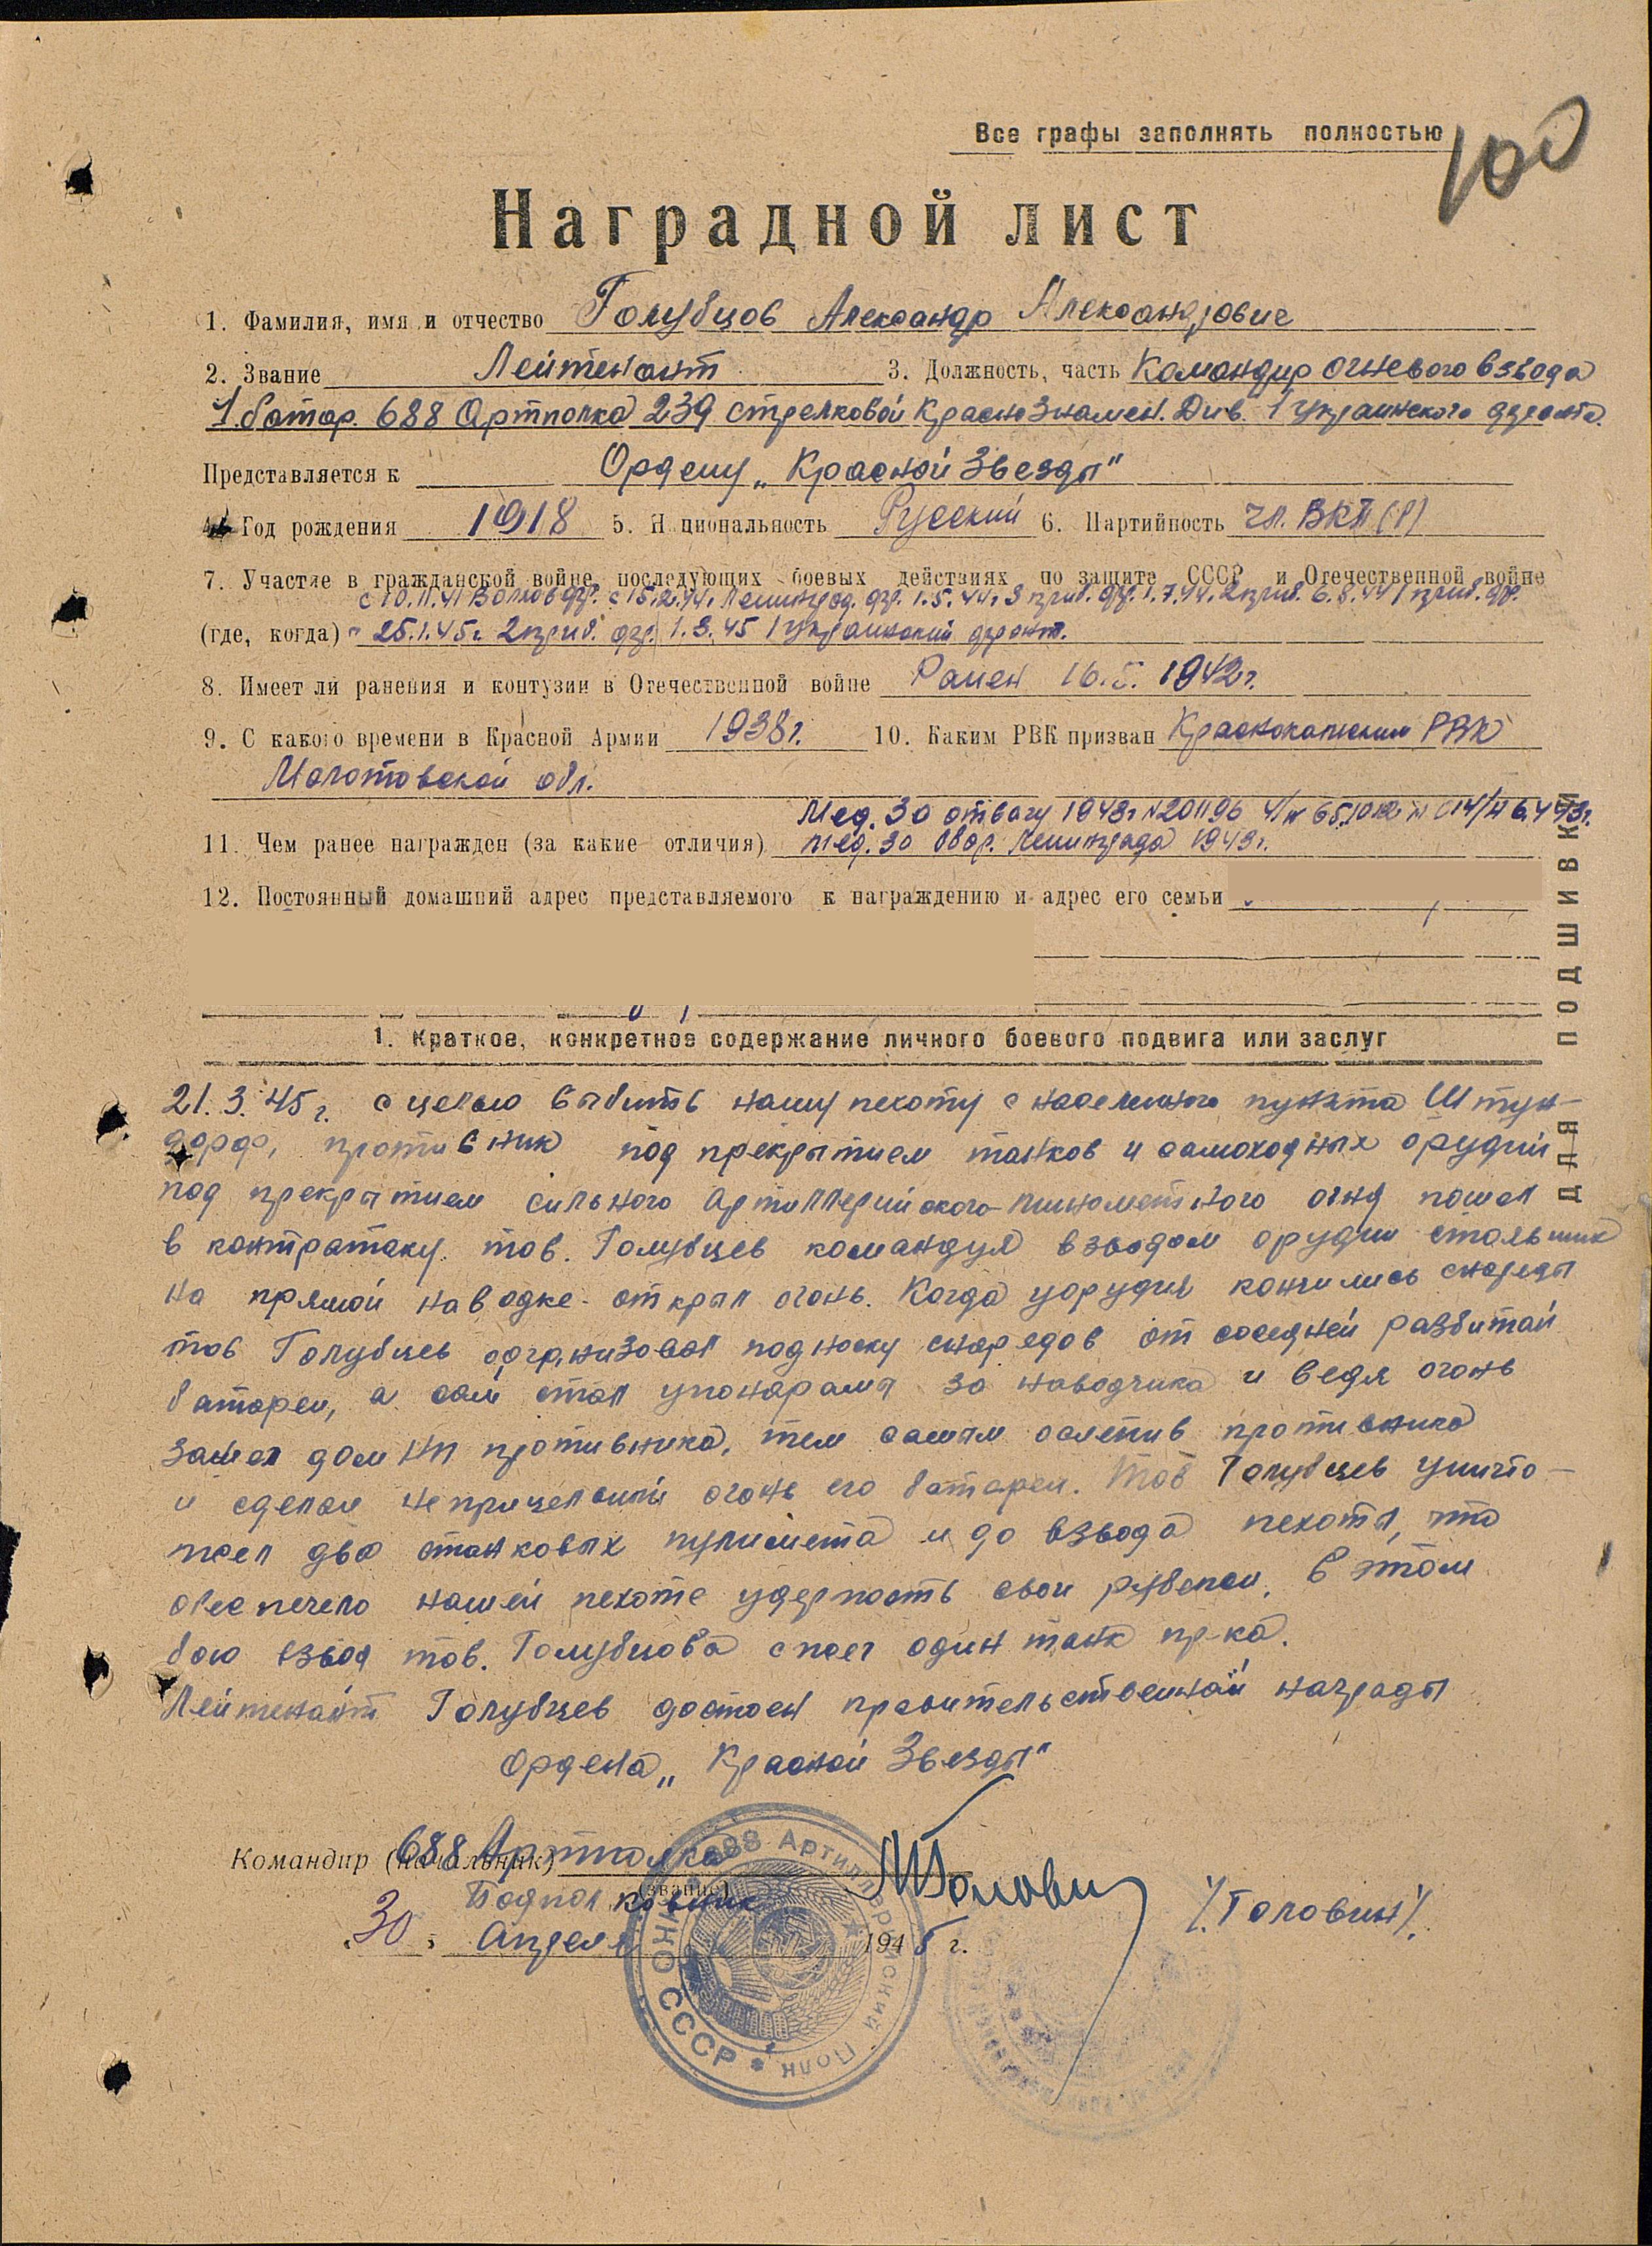 Все графы заполнять полностью
100
Наградной лист
1. Фамилия, имя и отчество Голубцов Александр Александрович
2. Звание Лейтенант 3. Должность, часть Командир огневого взвода
1 батар. 688 Артполка 239 стрелковой Краснознамен. Див. 1 Украинского фронта.
Представляется к Ордену „Красной Звезды"
4. Год рождения 1918 5. Н циональность Русский 6. Партийность чл. ВКП(б)
7. Участие в гражданской войне, последующих боевых действиях по защите СССР и Отечественной войне
с 10.11.41 Волхов фр. с 15.2.44г Ленинград. фр. 1.5.44г 3 приб. фр. 1.7.44. 2 приб. 6.8.44 1 приб. фр.
(где, когда) 25.1.45г. 2 приб. фр. 1.3.45 1 украинский фронт.
8. Имеет ли ранения и контузии в Отечественной войне Ранен 16.5.1942г.
9. С какого времени в Красной Армии 1938г. 10. Каким РВК призван Краснокамским РВК
Молотовской обл.
Мед. За отвагу 1943г №201196
11. Чем ранее награжден (за какие отличия) мед. за обор. Ленинграда 1943г.
12. Постоянный домашний адрес представляемого к награждению и адрес его семьи
1. Краткое, конкретное содержание личного боевого подвига или заслуг
21.3.45г. с целью выбить нашу пехоту с населенного пункта Штун-
дорф, противник под прекрытием танков и самоходных орудий
под прекрытием сильного Артиллерийского-минометного огня пошел
в контратаку. тов. Голубцев командуя взводом орудий стоявших
на прямой наводке открыл огонь. Когда у орудия кончились снаряды
тов Голубцев организовал подноску снарядов от соседней разбитой
батареи, а сам стал у панорамы за наводчика и ведя огонь
зажег дом НП противника, тем самым ослепив противника
и сделал неприцельный огонь его батареи. Тов Голубцев уничто-
жел два станковых пулимета и до взвода пехоты, что
обеспечело нашей пехоте удержать свои рубежи. В этом
бою взвод тов. Голубцова сжег один танк пр-ка.
Лейтенант Голубцев достоен правительственной награды
Ордена „Красной Звезды"
Командир (начальник) 688 Артполка
(звание)
Подполковник
Головин
/Головин/.
„30" Апреля 1945 г.
688 Артиллерийский Полк
НКО СССР
ДЛЯ ПОДШИВКИ